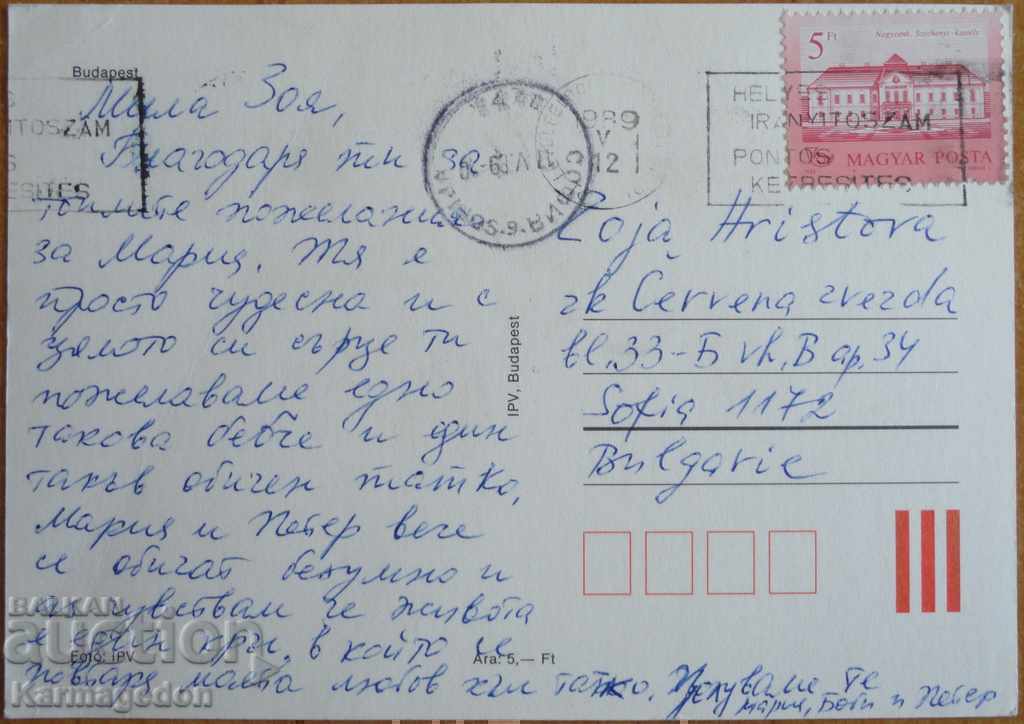 Budapest
Мила Зоя,
Благодаря ти за
топлите пожелания
за Мария. Тя е
просто чудесна и с
цялото си сърце ти
пожелаваме едно
такова бебче и един
такъв обичен татко.
Мария и Петер вече
се обичат безумно и
аз чувствам че живота
е един кръг, в който се
повтаря моята любов към татко. Целуваме те
Мария, Боти и Петер
Foto: IPV
Ára: 5,— Ft
IPV, Budapest
5 Ft
Nagycenk, Széchenyi-kastély
MAGYAR POSTA
HELYES
IRÁNYÍTÓSZÁM
PONTOS
KÉZBESÍTÉS
ÍTÓSZÁM
ÉZBESÍTÉS
989
V
12
СОФИЯ
Zoja Hristova
žk Červena zvezda
bl. 33-Б vh. B ap. 34
Sofia 1172
Bulgarie
BALKAN
auction
Karmagedon